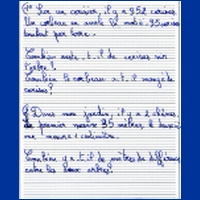 1° Sur un cerisier, il y a 952 cerises.
Un corbeau en avale la moitié. 95 cerises
tombent par terre.
Combien reste-t-il de cerises sur
l'arbre?
Combien le corbeau a-t-il mangé de
cerises?
2° Dans mon jardin, il y a 2 chênes.
Le premier mesure 25 mètres, le
mesure 1 centimètre.
Combien y a-t-il de mètres de différence
entre les deux arbres?